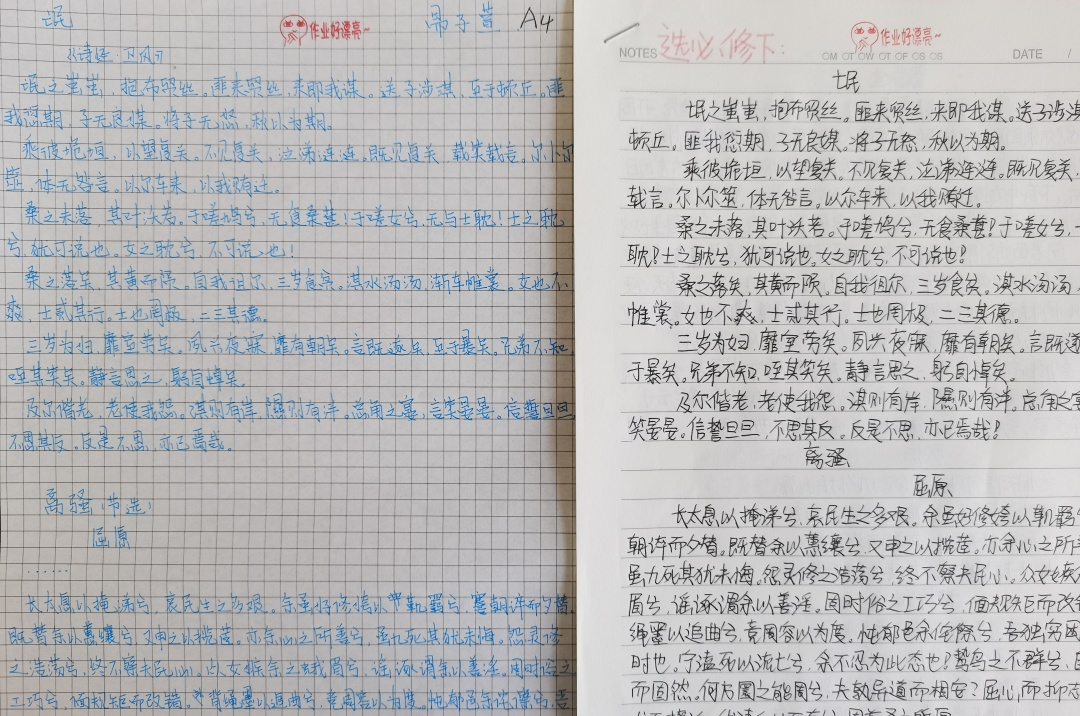 氓
A4
作业好漂亮~
《诗经·卫风》
氓之蚩蚩,抱布贸丝。匪来贸丝,来即我谋。送子涉淇,至于顿丘。匪
我愆期,子无良媒。将子无怒,秋以为期。
乘彼垝垣,以望复关。不见复关,泣涕涟涟。既见复关,载笑载言。尔卜尔
筮,体无咎言。以尔车来,以我贿迁。
桑之未落,其叶沃若。于嗟鸠兮,无食桑葚!于嗟女兮,无与士耽!士之耽
兮,犹可说也。女之耽兮,不可说也!
桑之落矣,其黄而陨。自我徂尔,三岁食贫。淇水汤汤,渐车帷裳。女也不
爽,士贰其行。士也罔极,二三其德。
三岁为妇,靡室劳矣。夙兴夜寐,靡有朝矣。言既遂矣,至于暴矣。兄弟不知,
咥其笑矣。静言思之,躬自悼矣。
及尔偕老,老使我怨。淇则有岸,隰则有泮。总角之宴,言笑晏晏。信誓旦旦,
不思其反。反是不思,亦已焉哉。
离骚(节选)
屈原
······
长太息以掩涕兮,哀民生之多艰。余虽好修姱以鞿羁兮,謇朝谇而夕替。
既替余以蕙纕兮,又申之以揽茝。亦余心之所善兮,虽九死其犹未悔。怨灵修
之浩荡兮,终不察夫民心。众女嫉余之蛾眉兮,谣诼谓余以善淫。固时俗之
工巧兮,偭规矩而改错。背绳墨以追曲兮,竞周容以为度。忳郁邑余侘傺兮,吾
NOTES
选必修下:
作业好漂亮~
DATE /
氓
氓之蚩蚩,抱布贸丝。匪来贸丝,来即我谋。送子涉淇
顿丘。匪我愆期,子无良媒。将子无怒,秋以为期。
乘彼垝垣,以望复关。不见复关,泣涕涟涟。既见复关,
载言。尔卜尔筮,体无咎言。以尔车来,以我贿迁。
桑之未落,其叶沃若。于嗟鸠兮,无食桑葚!于嗟女兮,
耽!士之耽兮,犹可说也。女之耽兮,不可说也!
桑之落矣,其黄而陨。自我徂尔,三岁食贫。淇水汤汤,
帷裳。女也不爽,士贰其行。士也罔极,二三其德。
三岁为妇,靡室劳矣。夙兴夜寐,靡有朝矣。言既遂
于暴矣。兄弟不知,咥其笑矣。静言思之,躬自悼矣。
及尔偕老,老使我怨。淇则有岸,隰则有泮。总角之宴
笑晏晏。信誓旦旦,不思其反。反是不思,亦已焉哉!
离骚
屈原
长太息以掩涕兮,哀民生之多艰。余虽好修姱以鞿羁兮
朝谇而夕替。既替余以蕙纕兮,又申之以揽茝。亦余心之所善
虽九死其犹未悔。怨灵修之浩荡兮,终不察夫民心。众女嫉
眉兮,谣诼谓余以善淫。固时俗之工巧兮,偭规矩而改错
绳墨以追曲兮,竞周容以为度。忳郁邑余侘傺兮,吾独穷困
时也。宁溘死以流亡兮,余不忍为此态也?鸷鸟之不群兮,自
而固然。何方圜之能周兮,夫孰异道而相安?屈心而抑志